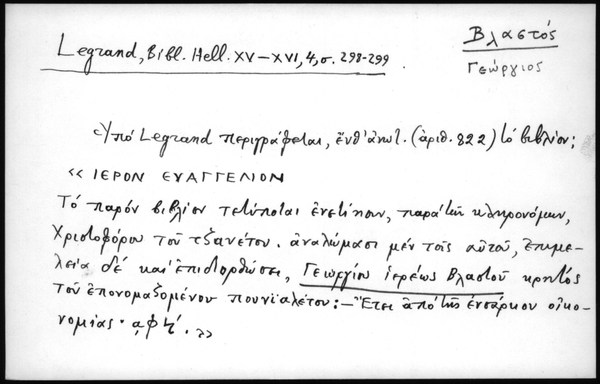 Βλαστός
Γεώργιος
Legrand, Bibl. Hell. XV–XVI, 4, σ. 298-299
Ὑπό Legrand περιγράφεται, ἔνθ' ἀνωτ. (ἀριθ. 822) τό βιβλίον:
«ΙΕΡΟΝ ΕΥΑΓΓΕΛΙΟΝ
Τό παρόν βιβλίον τετύπωται ἐνετίησιν, παρά τῶν κληρονόμων,
Χριστοφόρου τοῦ τζανέτου. ἀναλώμασι μέν τοῖς αὐτοῦ, ἐπιμε-
λεία δέ καί ἐπιδιορθώσει, Γεωργίου ἱερέως Βλαστοῦ κρητός
τοῦ ἐπονομαζομένου πουνιαλέτου:– Ἔτει ἀπό τῆς ἐνσάρκου οἰκο-
νομίας. ͵αφϟ΄.»